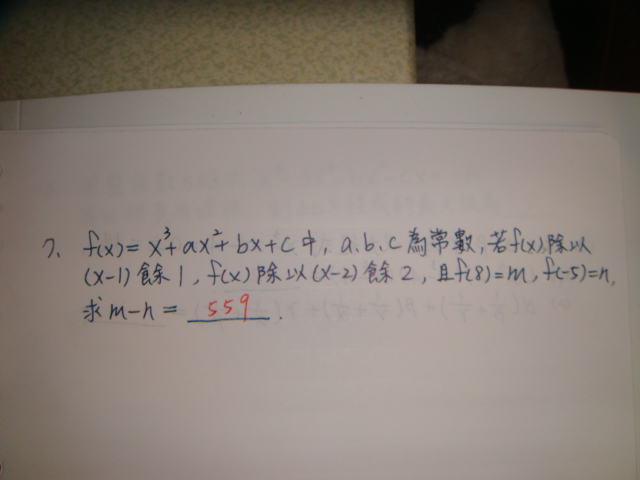 7. f(x)= x³+ax²+bx+c 中, a.b.c 為常數, 若f(x)除以
(x-1) 餘 1, f(x) 除以(x-2) 餘 2, 且f(8)=m, f(-5)=n,
求 m-n = 559 .